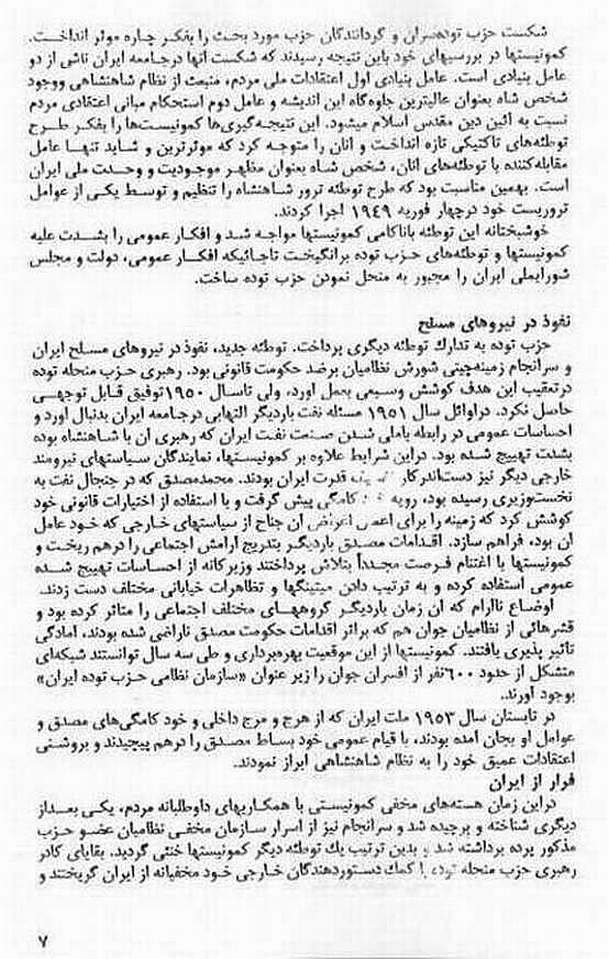 شکست حزب توده‌سران و گردانندگان حزب مورد بحث را بفکر چاره موثر انداخت.
کمونیستها در بررسیهای خود باین نتیجه رسیدند که شکست آنها درجامعه ایران ناشی از دو
عامل بنیادی است. عامل بنیادی اول اعتقادات ملی مردم، منبعث از نظام شاهنشاهی ووجود
شخص شاه بعنوان عالیترین جلوه‌گاه این اندیشه و عامل دوم استحکام مبانی اعتقادی مردم
نسبت به آئین دین مقدس اسلام میشود. این نتیجه‌گیری‌ها کمونیست‌ها را بفکر طرح
توطئه‌های تاکتیکی تازه انداخت و انان را متوجه کرد که موثرترین و شاید تنها عامل
مقابله‌کننده با توطئه‌های انان، شخص شاه بعنوان مظهر موجودیت و وحدت ملی ایران
است. بهمین مناسبت بود که طرح توطئه ترور شاهنشاه را تنظیم و توسط یکی از عوامل
تروریست خود درچهار فوریه ۱۹۴۹ اجرا کردند.
خوشبختانه این توطئه باناکامی کمونیستها مواجه شد و افکار عمومی را بشدت علیه
کمونیستها و توطئه‌های حزب توده برانگیخت تاجائیکه افکار عمومی، دولت و مجلس
شورایملی ایران را مجبور به منحل نمودن حزب توده ساخت.
نفوذ در نیروهای مسلح
حزب توده به تدارك توطئه دیگری پرداخت. توطئه جدید، نفوذ در نیروهای مسلح ایران
و سرانجام زمینه‌چینی شورش نظامیان برضد حکومت قانونی بود. رهبری حزب منحله توده
درتعقیب این هدف کوشش وسیعی بعمل اورد، ولی تاسال ۱۹۵۰توفیق قابل توجهی
حاصل نکرد. دراوائل سال ۱۹۵۱ مسئله نفت باردیگر التهابی درجامعه ایران بدنبال اورد و
احساسات عمومی در رابطه باملی شدن صنعت نفت ایران که رهبری ان با شاهنشاه بوده
بشدت تهییج شده بود. دراین شرایط علاوه بر کمونیستها، نمایندگان سیاستهای نیرومند
خارجی دیگر نیز دست‌اندرکار قدرت ایران بودند. محمدمصدق که در جنجال نفت به
نخست‌وزیری رسیده بود، رویه خود کامگی پیش گرفت و با استفاده از اختیارات قانونی خود
کوشش کرد که زمینه را برای اعمال اغراض آن جناح از سیاستهای خارجی که خود عامل
ان بود، فراهم سازد. اقدامات مصدق باردیگر بتدریج ارامش اجتماعی را درهم ریخت و
کمونیستها با اغتنام فرصت مجدداً بتلاش پرداختند وزیرکانه از احساسات تهییج شده
عمومی استفاده کرده و به ترتیب دادن میتینگها و تظاهرات خیابانی مختلف دست زدند.
اوضاع ناارام که ان زمان باردیگر گروههای مختلف اجتماعی را متاثر کرده بود و
قشرهائی از نظامیان جوان هم که براثر اقدامات حکومت مصدق ناراضی شده بودند، امادگی
تاثیر پذیری یافتند. کمونیستها از این موقعیت بهره‌برداری و طی سه سال توانستند شبکه‌ای
متشکل از حدود ۶۰۰نفر از افسران جوان را زیر عنوان «سازمان نظامی حزب توده ایران»
بوجود اورند.
در تابستان سال ۱۹۵۳ ملت ایران که از هرج و مرج داخلی و خود کامگی‌های مصدق و
عوامل او بجان امده بودند، با قیام عمومی خود بساط مصدق را درهم پیچیدند و بروشنی
اعتقادات عمیق خود را به نظام شاهنشاهی ابراز نمودند.
فرار از ایران
دراین زمان هسته‌های مخفی کمونیستی با همکاریهای داوطلبانه مردم، یکی بعداز
دیگری شناخته و برچیده شد و سرانجام نیز از اسرار سازمان مخفی نظامیان عضو حزب
مذکور پرده برداشته شد و بدین ترتیب یك توطئه دیگر کمونیستها خنثی گردید. بقایای کادر
رهبری حزب منحله توده با کمك دستوردهندگان خارجی خود مخفیانه از ایران گریختند و
۷